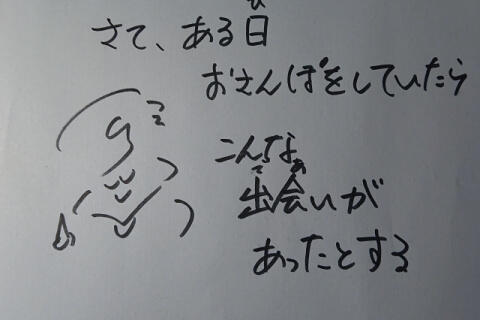 さて、ある日
おさんぽをしていたら
こんな
出会いが
あったとする